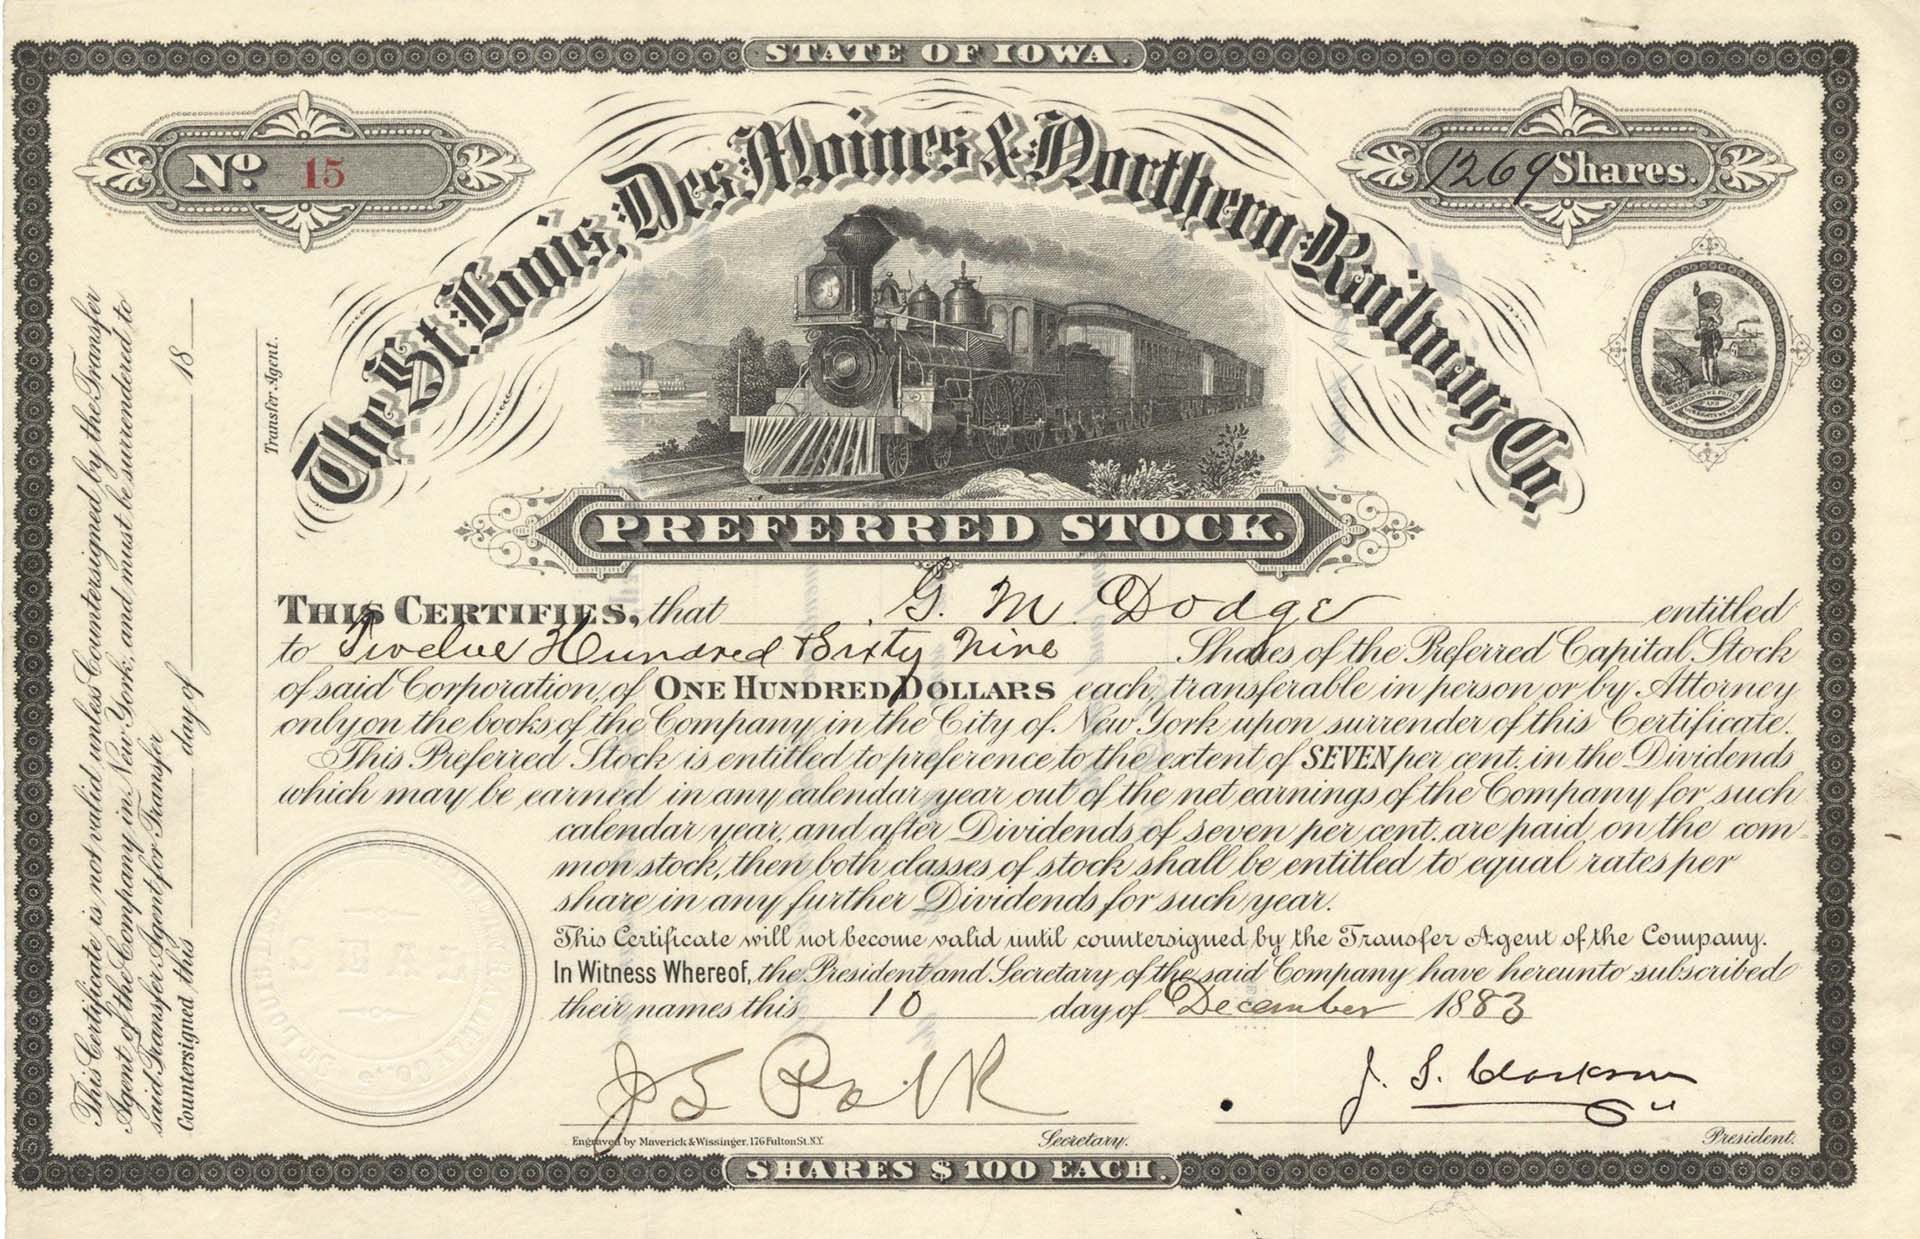 STATE OF IOWA.
No. 15
1269 Shares.
The St. Louis, Des Moines & Northern Railway Co.
PREFERRED STOCK.
THIS CERTIFIES, that G. M. Dodge entitled
to Twelve Hundred & Sixty Nine Shares of the Preferred Capital Stock
of said Corporation, of ONE HUNDRED DOLLARS each, transferable in person or by Attorney
only on the books of the Company in the City of New York upon surrender of this Certificate.
This Preferred Stock is entitled to preference to the extent of SEVEN per cent. in the Dividends
which may be earned in any calendar year out of the net earnings of the Company for such
calendar year, and after Dividends of seven per cent. are paid on the com-
mon stock, then both classes of stock shall be entitled to equal rates per
share in any further Dividends for such year.
This Certificate will not become valid until countersigned by the Transfer Agent of the Company.
In Witness Whereof, the President and Secretary of the said Company have hereunto subscribed
their names this 10 day of December 1883
J S Polk
Secretary.
J. S. Clarkson
President.
Engraved by Maverick & Wissinger, 176 Fulton St. N.Y.
SHARES $100 EACH.
This Certificate is not valid unless Countersigned by the Transfer
Agent of the Company in New York, and must be surrendered to
said Transfer Agent for Transfer
Countersigned this day of 18
Transfer Agent.